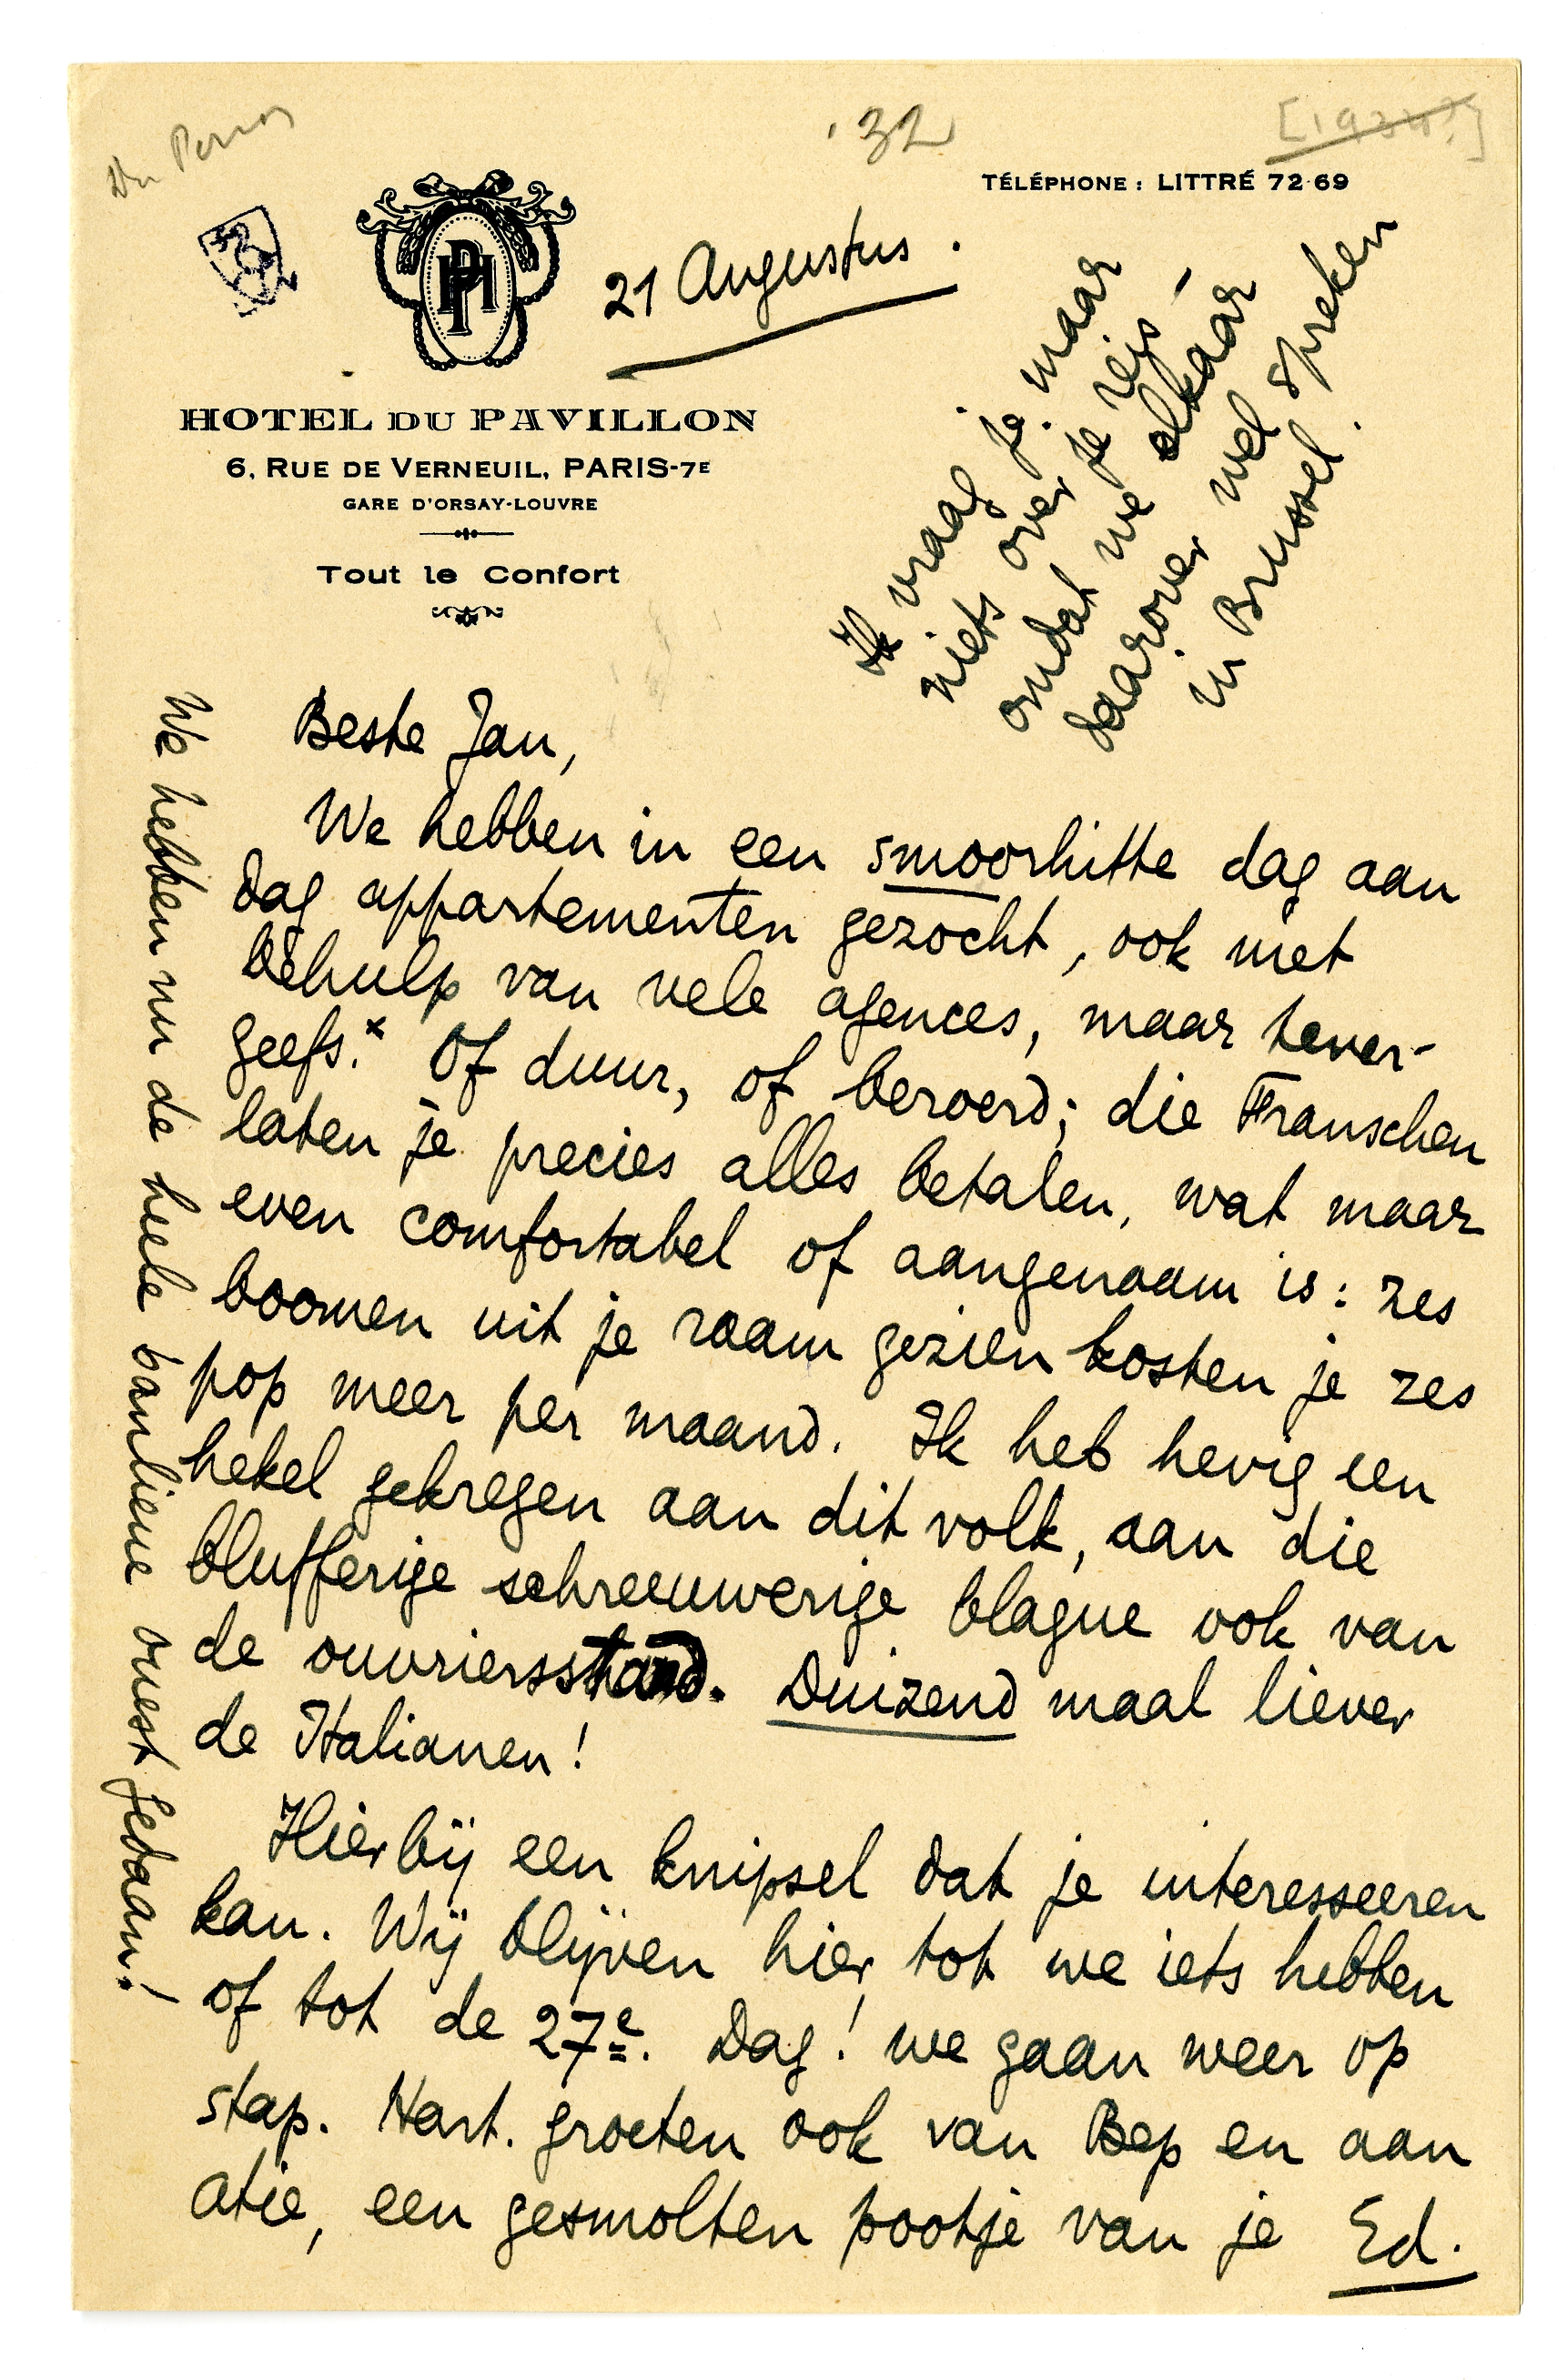 Du Perron
'32
[1934?]
TÉLÉPHONE : LITTRÉ 72-69
HPH
21 Augustus.
HOTEL DU PAVILLON
6, RUE DE VERNEUIL, PARIS-7E
GARE D'ORSAY-LOUVRE
Tout le Confort
Ik vraag je maar
niets over je reis,
omdat we elkaar
daarover wel spreken
in Brussel.
Beste Jan,
We hebben in een smoorhitte dag aan
dag appartementen gezocht, ook met
behulp van vele agences, maar tever-
geefs.x Of duur, of beroerd; die Franschen
laten je precies alles betalen, wat maar
even comfortabel of aangenaam is: zes
boomen uit je raam gezien kosten je zes
pop meer per maand. Ik heb hevig een
hekel gekregen aan dit volk, aan die
blufferige schreeuwerige blague ook van
de ouvriersstand. Duizend maal liever
de Italianen!
Hierbij een knipsel dat je interesseeren
kan. Wij blijven hier tot we iets hebben
of tot de 27e. Dag! we gaan weer op
stap. Hart. groeten ook van Bep en aan
Atie, een gesmolten pootje van je Ed.
We hebben nu de heele banlieue ouest gedaan!